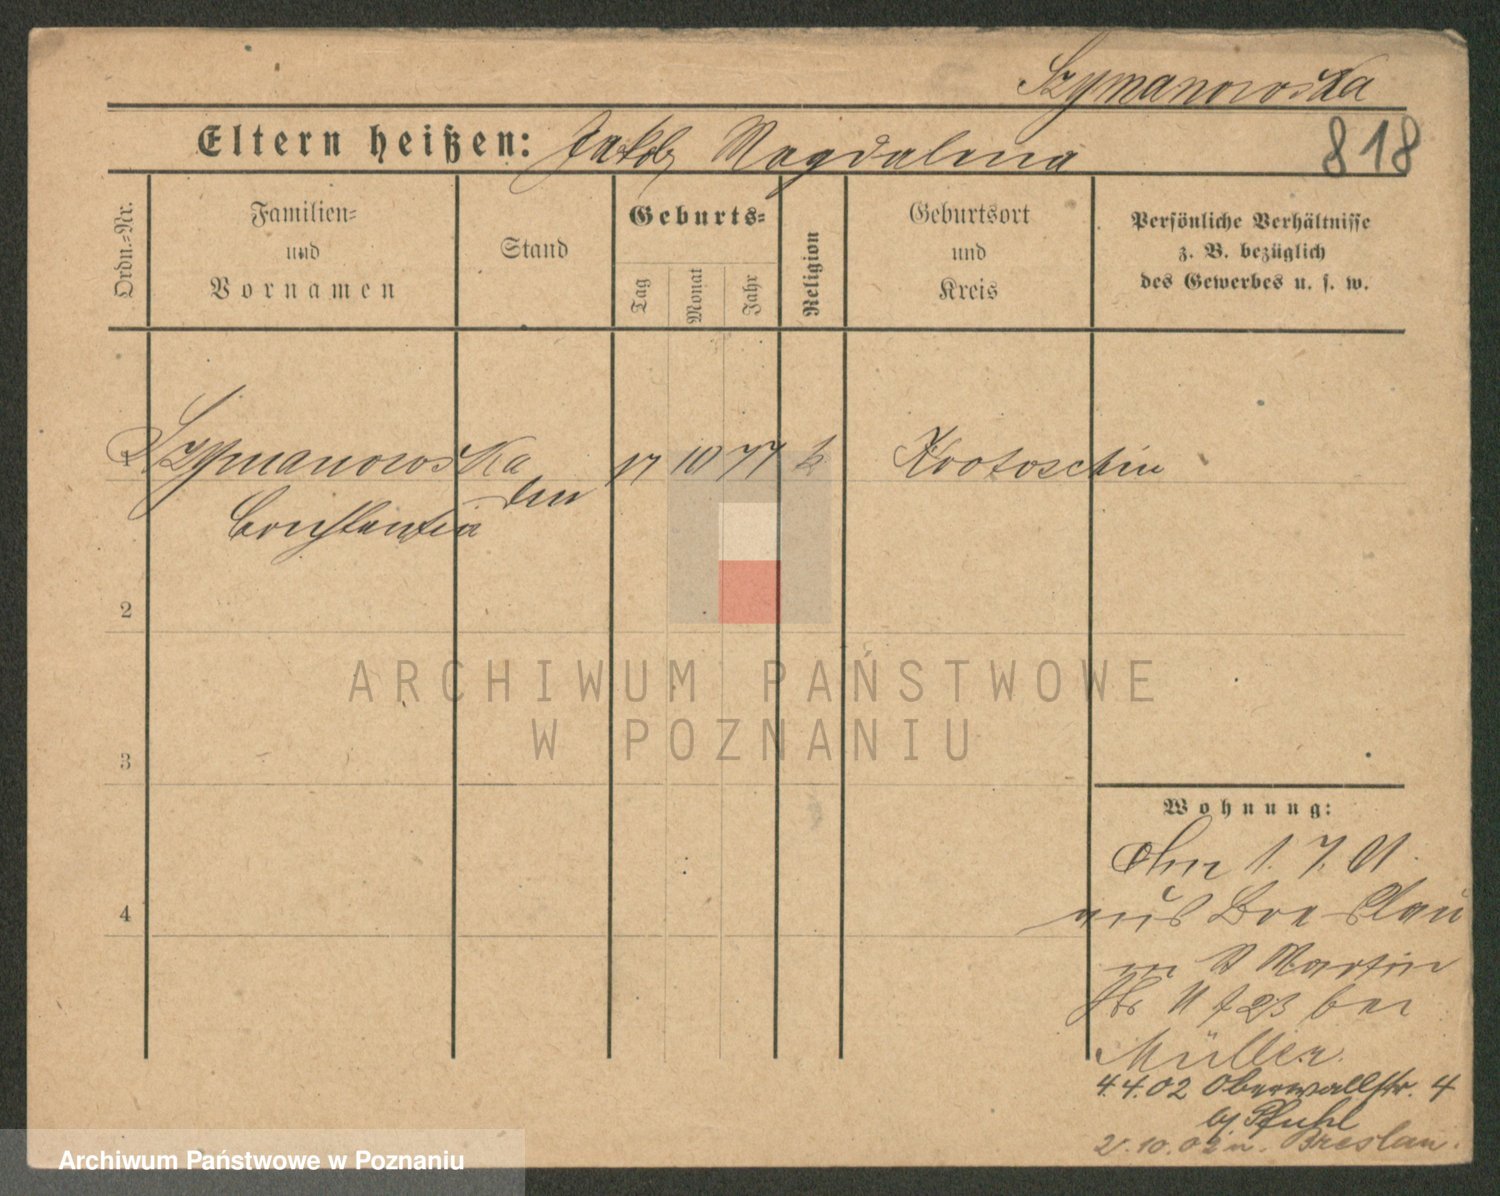 Szymanowska
Eltern heißen: Jakob Magdalena
818
Ordn.-Nr.
Familien-
und
Vornamen
Stand
Geburts-
Tag
Monat
Jahr
Religion
Geburtsort
und
Kreis
Persönliche Verhältnisse
z. B. bezüglich
des Gewerbes u. s. w.
1 Szymanowska 17 10 77 k Krotoschin
Constantia
2
3
4
ARCHIWUM PAŃSTWOWE
W POZNANIU
Wohnung:
1. 7. 01.
aus Breslau
n St Martin
Str 23 bei
Müller.
4.4.02 Oberwallstr. 4
bj. Pfuhl
2.10.02 n. Breslau.
Archiwum Państwowe w Poznaniu